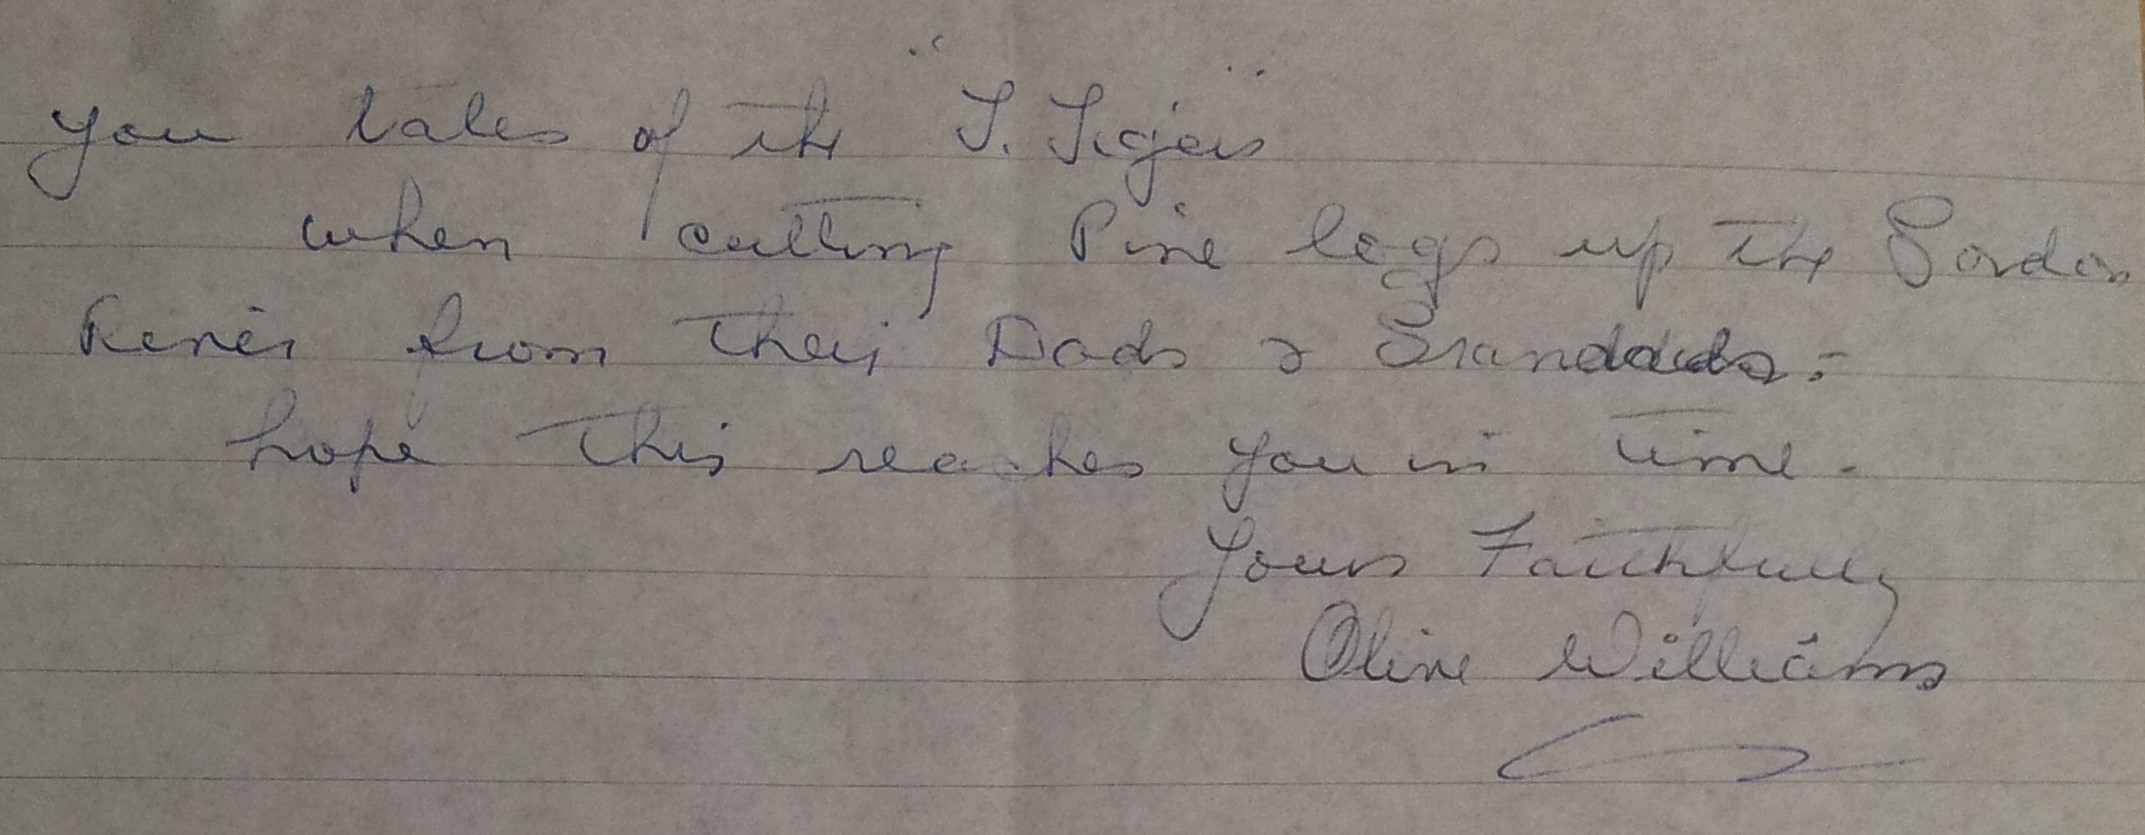 you tales of the "T. Tigers"
when cutting Pine logs up the Gordon
River from their Dads & Grandads:-
hope this reaches you in time.
Yours Faithfully
Olive Williams